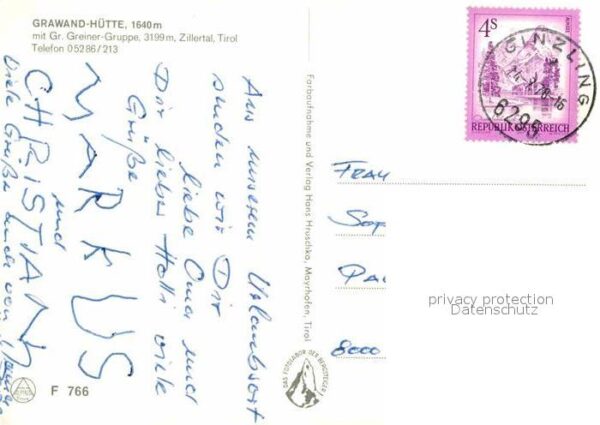 GRAWAND-HÜTTE, 1640 m
mit Gr. Greiner-Gruppe, 3199 m, Zillertal, Tirol
Telefon 0 52 86 / 213
Aus unserem Urlaubsort
senden wir Dir
liebe Oma und
Dir lieber Holli viele
Grüße
MARKUS
und
CHRISTIAN
Viele Grüße auch von
F 766
Farbaufnahme und Verlag Hans Hruschka, Mayrhofen, Tirol
DAS FOTOLABOR DER BERGSTEIGER
4S
REPUBLIK ÖSTERREICH
GINZLING
6295
FRAU
8000
privacy protection
Datenschutz